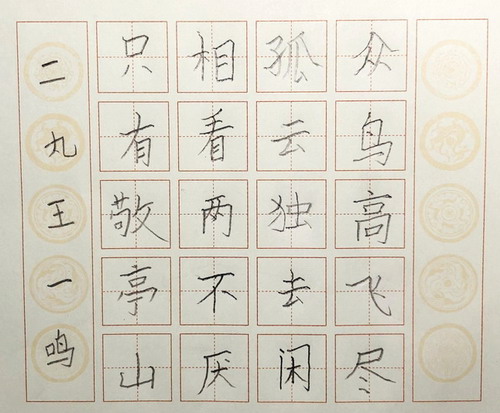 众鸟高飞尽
孤云独去闲
相看两不厌
只有敬亭山
二丸王一鸣